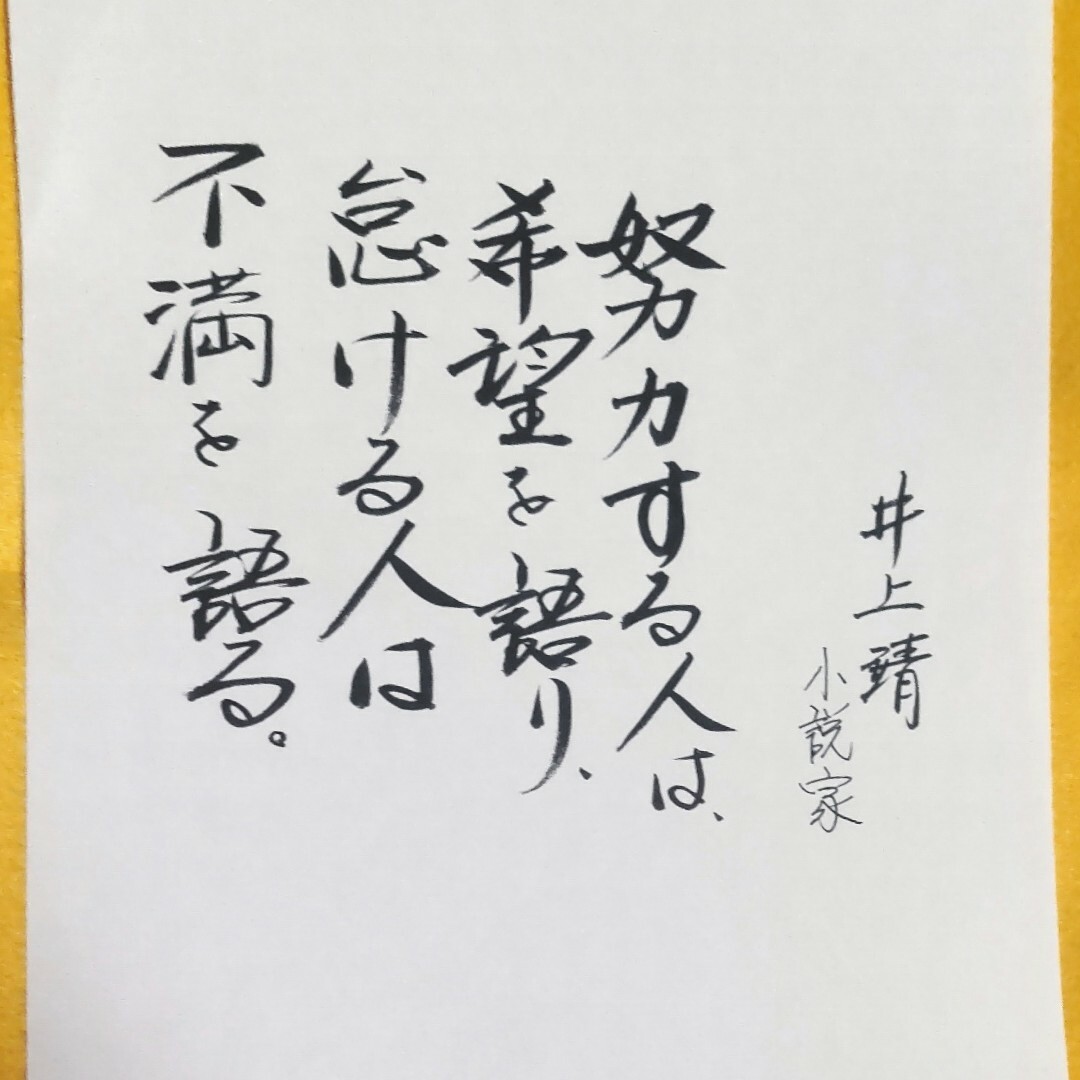 井上靖
小説家
努力する人は、
希望を語り、
怠ける人は
不満を語る。